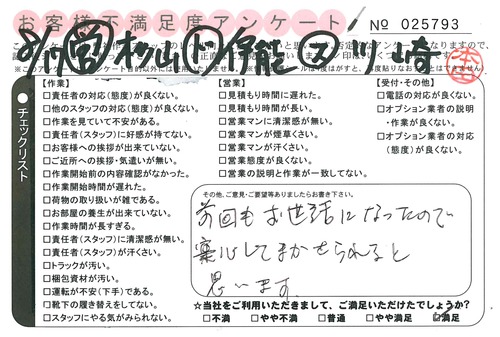 お客様不満足度アンケート
No 025793
チェックリスト
【作業】
□責任者の対応(態度)が良くない。
□他のスタッフの対応(態度)が良くない。
□作業を見ていて不安がある。
□責任者(スタッフ)に好感が持てない。
□お客様への挨拶が出来ていない。
□ご近所への挨拶・気遣いが無い。
□作業開始前の内容確認がなかった。
□作業開始時間が遅れた。
□荷物の取り扱いが雑である。
□お部屋の養生が出来ていない。
□作業時間が長すぎる。
□責任者(スタッフ)に清潔感が無い。
□責任者(スタッフ)が汗くさい。
□トラックが汚い。
□梱包資材が汚い。
□運転が不安(下手)である。
□靴下の履き替えをしてない。
□スタッフにやる気がみられない。
【営業】
□見積もり時間に遅れた。
□見積もり時間が長い。
□営業マンに清潔感が無い。
□営業マンが煙草くさい。
□営業マンが汗くさい。
□営業態度が良くない。
□営業の説明と作業が一致してない。
【受付・その他】
□電話の対応が良くない。
□オプション業者の説明
・作業が良くない。
□オプション業者の対応
(態度)が良くない。
その他、ご意見・ご要望等ありましたらお書き下さい。
前回もお世話になったので
安心してまかせられると
思います
☆当社をご利用いただきまして、ご満足いただけたでしょうか?
□不満 □やや不満 □普通 □やや満足 □満足